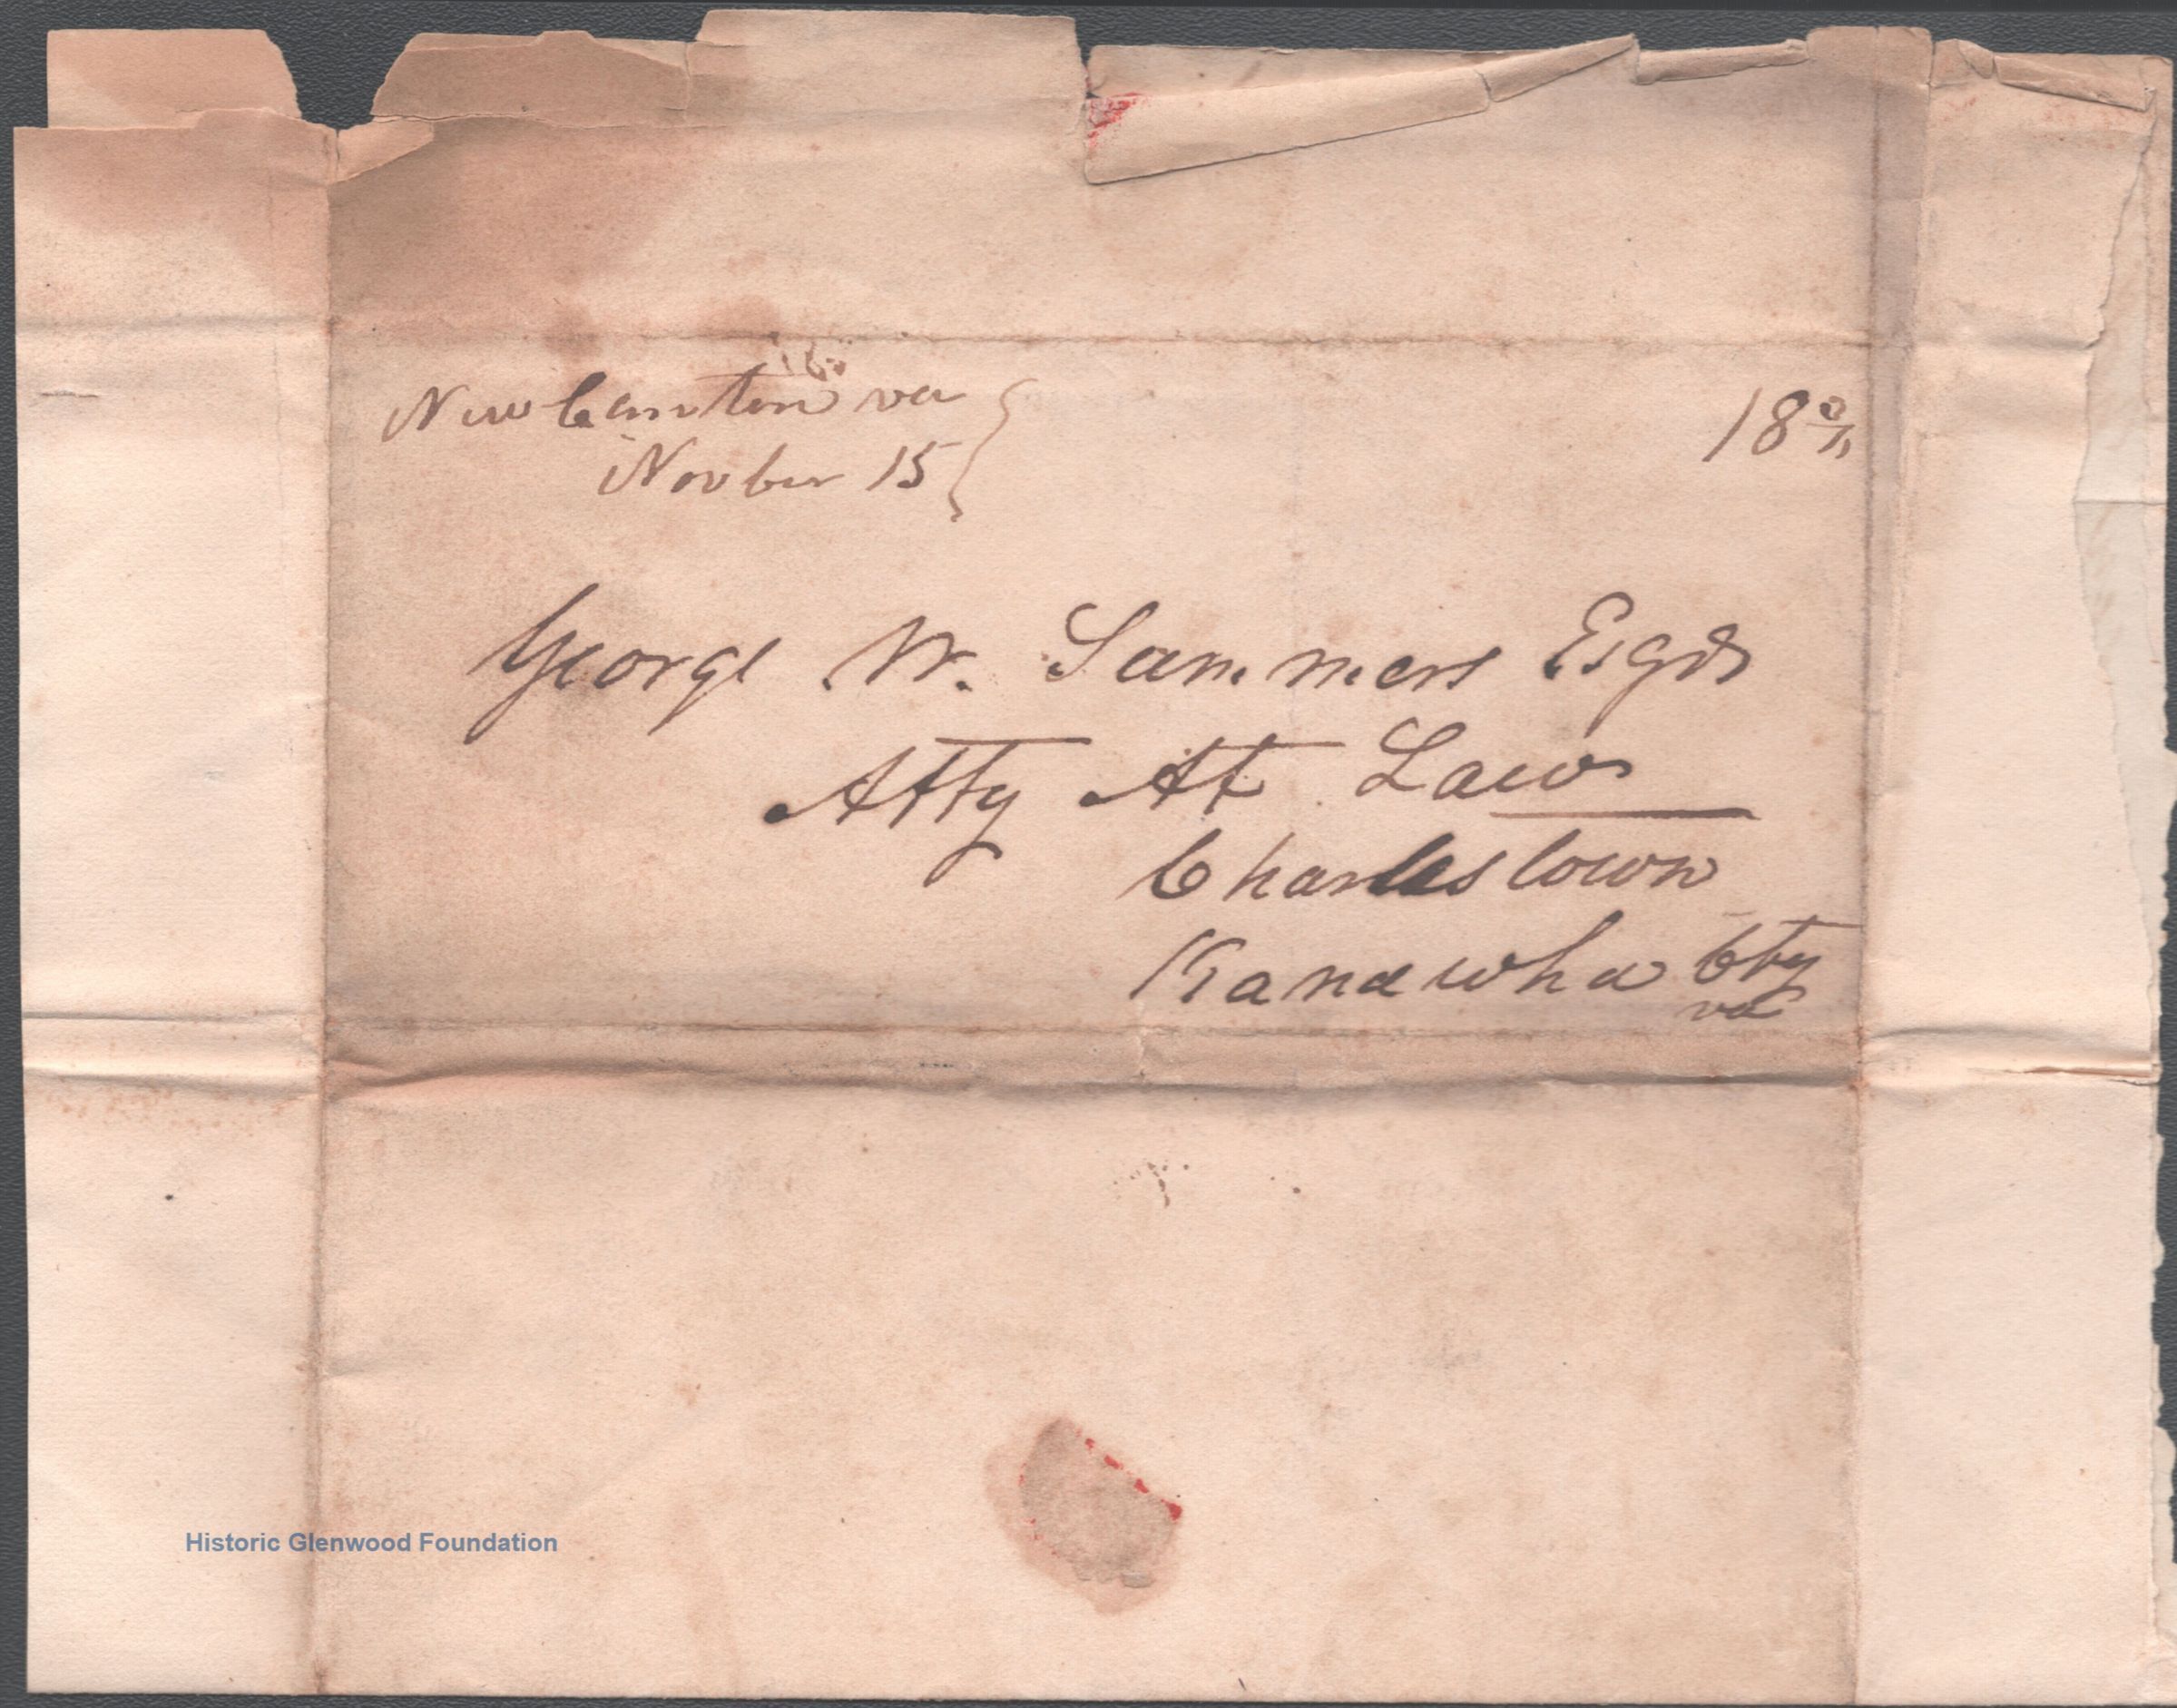 New Canton va
Novber 15
18 3/4
George W. Summers Esqr
Atty At Law
Charlestown
Kanawha Cty
va
Historic Glenwood Foundation